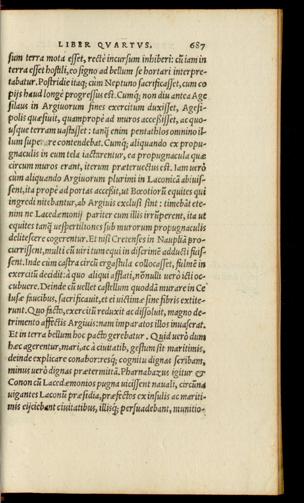 LIBER QVARTVS. 687
sum terra mota esset, recté incursum inhiberi: cũ iam in
terra esset hostili, eo signo ad bellum se hortari interpre-
tabatur. Postridie itaq; cùm Neptuno sacrificasset, cum co
pijs haud longè progressus est. Cumq; non diu antea Age
silaus in Argiuorum fines exercitum duxisset, Agesi-
polis quæsiuit, quampropè ad muros accessisset, ac quo-
usque terram uastasset: tanq̃ enim pentathlos omnino il-
lum superare contendebat. Cumq; aliquando ex propu-
gnaculis in eum tela iactarentur, ea propugnacula quæ
circum muros erant, iterum præteruectus est. Iam uerò
cùm aliquando Argiuorum plurimi in Laconicã abiuis-
sent, ita propè ad portas accessit, ut Bœotiorũ equites qui
ingredi nitebantur, ab Argiuis exclusi sint: timebãt ete-
nim ne Lacedæmonij pariter cum illis irrũperent, ita ut
equites tanq̃ uespertitiones sub murorum propugnaculis
delitescere cogerentur. Et nisi Cretenses in Naupliã pro-
currissent, multi cũ uiri tum equi in discrimẽ adducti fuis-
sent. Inde cum castra circũ ergastula collocasset, fulmẽ in
exercitũ decidit: à quo aliqui afflati, nõnulli uerò icti oc-
cubuere. Deinde cũ uellet castellum quoddã murare in Ce
lusæ faucibus, sacrificauit, et ei uictimæ sine fibris extite-
runt. Quo facto, exercitũ reduxit ac dissoluit, magno de-
trimento affectis Argiuis: nam imparatos illos inuaserat.
Et in terra bellum hoc pacto gerebatur. Quid uerò dum
hæc agerentur, mari, ac à ciuitatib, gestum sit maritimis,
deinde explicare conabor: resq; cognitu dignas scribam,
minus uerò dignas prætermittã. Pharnabazus igitur &
Conon cũ Lacedæmonios pugna uicissent nauali, circũna
uigantes Laconũ præsidia, præfectos ex insulis ac mariti-
mis eijciebant ciuitatibus, illisq; persuadebant, munitio-